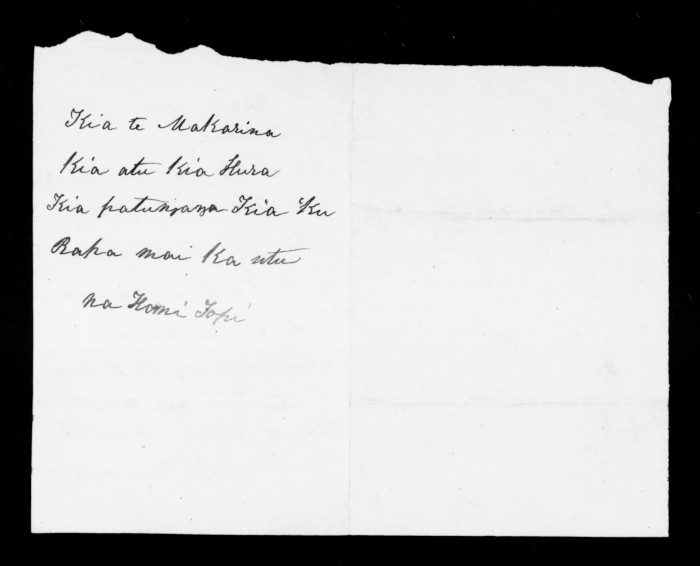 Kia te Makarina
Kia atu kia Hura
Kia patungana Kia Ku
Rapa mai ka utu
na Homi Topi